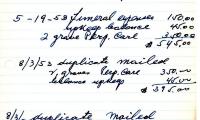 5-19-53 Funeral expenses 150.00
upkeep balance 45.00
2 graves Perp. Care 350.00
$545.00
8/3/53 duplicate mailed
2 graves Perp. Care 350.00
balance upkeep 45.00
$395.00
duplicate mailed